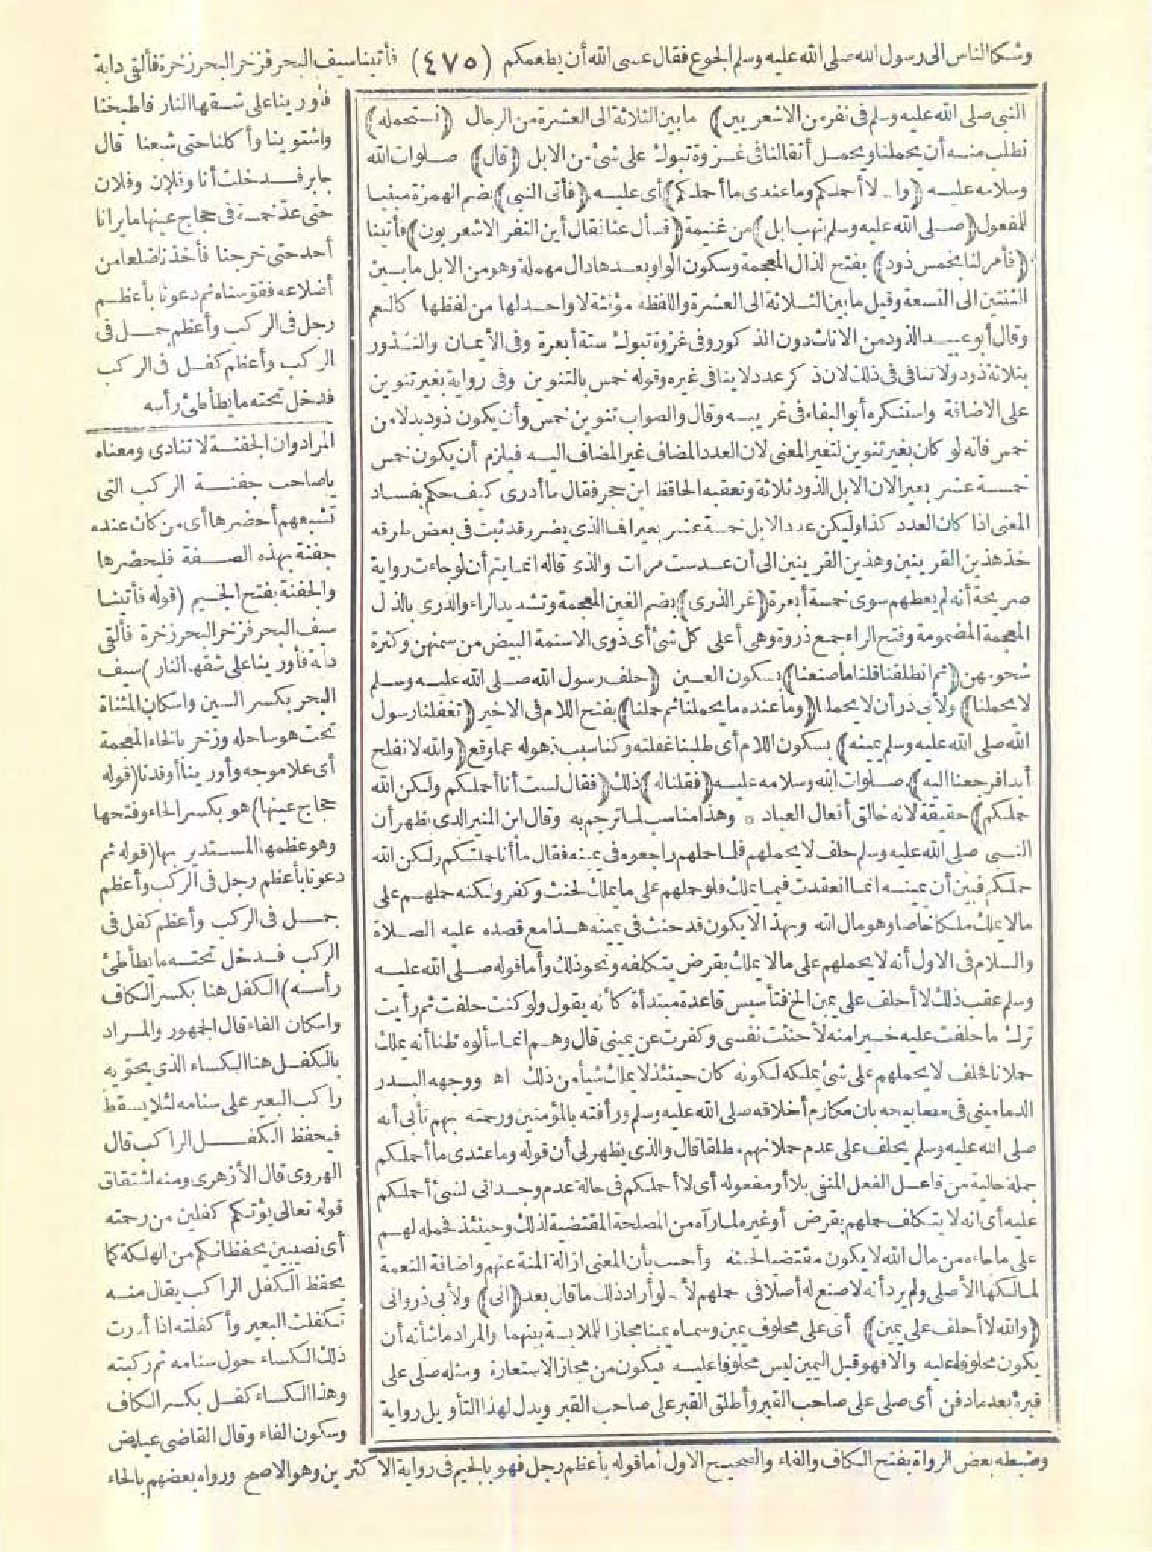 وشكا الناس الى رسول الله صلى الله عليه وسلم الجوع فقال عسى الله أن يطعمكم (٤٧٥) فأتينا سيف البحر فزخر البحر زخرة فألقى دابة
النبى صلى الله عليه وسلم فى نفر من الاشعريين) ما بين الثلاثة الى العشرة من الرجال (نستحمله)
نطلب منه أن يحملنا ويحمل أثقالنا فى غزوة تبوك على شئ من الابل (قال) صلوات الله
وسلامه عليه (والله لا أحملكم وما عندى ما أحملكم) أى عليه (فأتى النبى) بضم الهمزة مبنيا
للمفعول (صلى الله عليه وسلم بنهب ابل) من غنيمة (فسأل عنا فقال أين النفر الاشعريون) فأتينا
(فأمر لنا بخمس ذود) بفتح الذال المعجمة وسكون الواو بعدها دال مهملة وهو من الابل ما بين
الثنتين الى التسعة وقيل ما بين الثلاثة الى العشرة واللفظة مؤنثة لا واحد لها من لفظها كالنعم
وقال أبو عبيد الذود من الاناث دون الذكور وفى غزوة تبوك ستة أبعرة وفى الأيمان والنذور
بثلاثة ذود ولا تنافى فى ذلك لان ذكر عدد لا ينافى غيره وقوله خمس بالتنوين وفى رواية بغير تنوين
على الاضافة واستنكره أبو البقاء فى غريبه وقال والصواب تنوين خمس وأن يكون ذود بدلا من
خمس فانه لو كان بغير تنوين لتغير المعنى لان العدد المضاف غير المضاف اليه فيلزم أن يكون خمس
خمسة عشر بعيرا لان الابل الذود ثلاثة وتعقبه الحافظ ابن حجر فقال ما أدرى كيف حكم بفساد
المعنى اذا كان العدد كذا وليكن عدد الابل خمسة عشر بعيرا فما الذى يضر وقد ثبت فى بعض طرقه
خذ هذين القرينين وهذين القرينين الى أن عد ست مرات والذى قاله انما يتم أن لو جاءت رواية
صريحة أنه لم يعطهم سوى خمسة أبعرة (غر الذرى) بضم الغين المعجمة وتشديد الراء والذرى بالذال
المعجمة المضمومة وفتح الراء جمع ذروة وهى أعلى كل شئ أى ذوى الاسنمة البيض من سمنهن وكثرة
شحومهن (ثم انطلقنا قلنا ما صنعنا) بسكون العين (حلف رسول الله صلى الله عليه وسلم
لا يحملنا) ولأبى ذر أن لا يحملنا (وما عنده ما يحملنا ثم حملنا) بفتح اللام فى الاخير (تغفلنا رسول
الله صلى الله عليه وسلم يمينه) بسكون اللام أى طلبنا غفلته وكنا سبب ذهوله عما وقع (والله لا نفلح
أبدا فرجعنا اليه) صلوات الله وسلامه عليه (فقلنا له) ذلك (فقال لست أنا أحملكم ولكن الله
حملكم) حقيقة لانه خالق أفعال العباد * وهذا مناسب لما ترجم به وقال ابن المنير الذى يظهر أن
النبى صلى الله عليه وسلم حلف لا يحملهم فلما حملهم راجعوه فى يمينه فقال ما أنا حملتكم ولكن الله
حملكم فبين أن يمينه انما انعقدت فيما يملك فلو حملهم على ما يملك لحنث وكفر ولكنه حملهم على
مالا يملك ملكا خاصا وهو مال الله وبهذا لا يكون قد حنث فى يمينه هذا مع قصده عليه الصلاة
والسلام فى الاول أنه لا يحملهم على مالا يملك بقرض يتكلفه ونحو ذلك وأما قوله صلى الله عليه
وسلم عقب ذلك لا أحلف على يمين الخ فتأسيس قاعدة مبتدأة كأنه يقول ولو كنت حلفت ثم رأيت
ترك ما حلفت عليه خيرا منه لأحنثت نفسى وكفرت عن يمينى قال وهم انما سألوه ظنا أنه يملك
حملانا فحلف لا يحملهم على شئ يملكه لكونه كان حينئذ لا يملك شيأ من ذلك اه ووجهه البدر
الدمامينى فى مصابيحه بان مكارم أخلاقه صلى الله عليه وسلم ورأفته بالمؤمنين ورحمته بهم تأبى أنه
صلى الله عليه وسلم يحلف على عدم حملانهم مطلقا قال والذى يظهر لى أن قوله وما عندى ما أحملكم
جملة حالية من فاعل الفعل المنفى بلا أو مفعوله أى لا أحملكم فى حالة عدم وجدانى لشئ أحملكم
عليه أى انه لا يتكلف حملهم بقرض أو غيره لما رآه من المصلحة المقتضية لذلك وحينئذ فحمله لهم
على ما جاءه من مال الله لا يكون مقتضيا لحنثه وأجيب بأن المعنى ازالة المنة عنهم واضافة النعمة
لمالكها الأصلى ولم يرد أنه لا صنع له أصلا فى حملهم لأنه لو أراد ذلك ما قال بعد (انى) ولأبى ذر وانى
(والله لا أحلف على يمين) أى على محلوف يمين وسماه يمينا مجازا للملابسة بينهما والمراد ما شأنه أن
يكون محلوفا عليه والا فهو قبل اليمين ليس محلوفا عليه فيكون من مجاز الاستعارة ومثله صلى على
قبره بعد ما دفن أى صلى على صاحب القبر وأطلق القبر على صاحب القبر ويدل لهذا التأويل رواية
فأورينا على شقها النار فاطبخنا
واشتوينا وأكلنا حتى شبعنا قال
جابر فدخلت أنا وفلان وفلان
حتى عد خمسة فى حجاج عينها ما يرانا
أحد حتى خرجنا فأخذنا ضلعا من
أضلاعه فقوسناه ثم دعونا بأعظم
رجل فى الركب وأعظم جمل فى
الركب وأعظم كفل فى الركب
فدخل تحته ما يطأطئ رأسه
المراد وان الجفنة لا تنادى ومعناه
ياصاحب جفنة الركب التى
تشبعهم أحضرها أى من كان عنده
جفنة بهذه الصفة فليحضرها
والجفنة بفتح الجيم (قوله فأتينا
سيف البحر فزخر البحر زخرة فألقى
دابة فأورينا على شقها النار) سيف
البحر بكسر السين واسكان المثناة
تحت هو ساحله وزخر بالخاء المعجمة
أى علا موجه وأورينا أوقدنا (قوله
حجاج عينها) هو بكسر الحاء وفتحها
وهو عظمها المستدير بها (قوله ثم
دعونا بأعظم رجل فى الركب وأعظم
جمل فى الركب وأعظم كفل فى
الركب فدخل تحته ما يطأطئ
رأسه) الكفل هنا بكسر الكاف
واسكان الفاء قال الجمهور والمراد
بالكفل هنا الكساء الذى يحويه
راكب البعير على سنامه لئلا يسقط
فيحفظ الكفل الراكب قال
الهروى قال الأزهرى ومنه اشتقاق
قوله تعالى يؤتكم كفلين من رحمته
أى نصيبين يحفظانكم من الهلكة كما
يحفظ الكفل الراكب يقال منه
تكفلت البعير وأكفلته اذا أدرت
ذلك الكساء حول سنامه ثم ركبته
وهذا الكساء كفل بكسر الكاف
وسكون الفاء وقال القاضى عياض
وضبطه بعض الرواة بفتح الكاف والفاء والصحيح الاول أما قوله بأعظم رجل فهو بالجيم فى رواية الاكثرين وهو الاصح ورواه بعضهم بالحاء